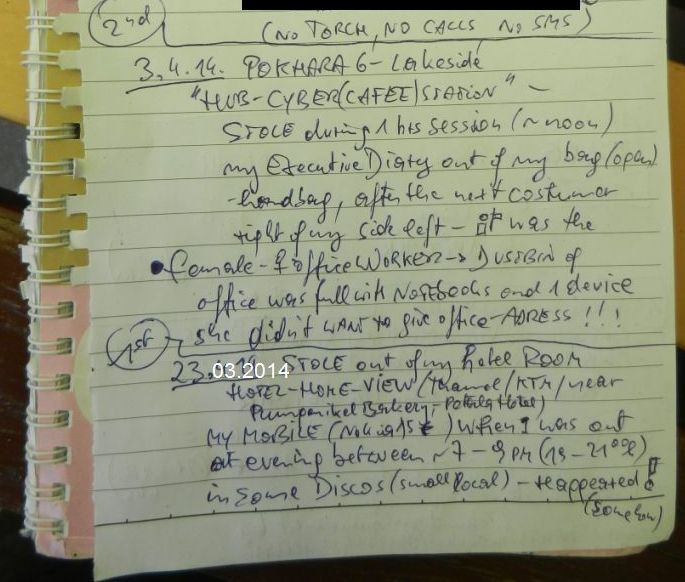 2nd (NO TORCH, NO CALLS NO SMS)
3.4.14. POKHARA 6- Lakeside
"HUB-CYBER(CAFEE)STATION" -
STOLE during 1 hrs Session (~noon)
my Executive Diary out of my bag (open)
-handbag, after the next costumer
right of my side left - it was the
• female - ♀ office WORKER -> DUSTBIN of
office was full with NoteBooks and 1 device
1st she didn't WANT to give office-ADRESS !!!
23.03.2014 STOLE out of my hotel ROOM
HOTEL-HOME-VIEW (Thamel/KTM/near
Pumpernikel Bakery, Potala Hotel)
MY MOBILE (Nokia ) when I was out
at evening between ~7-9 PM (19-21
in some Discos (small local) - reappeared !
(somehow)